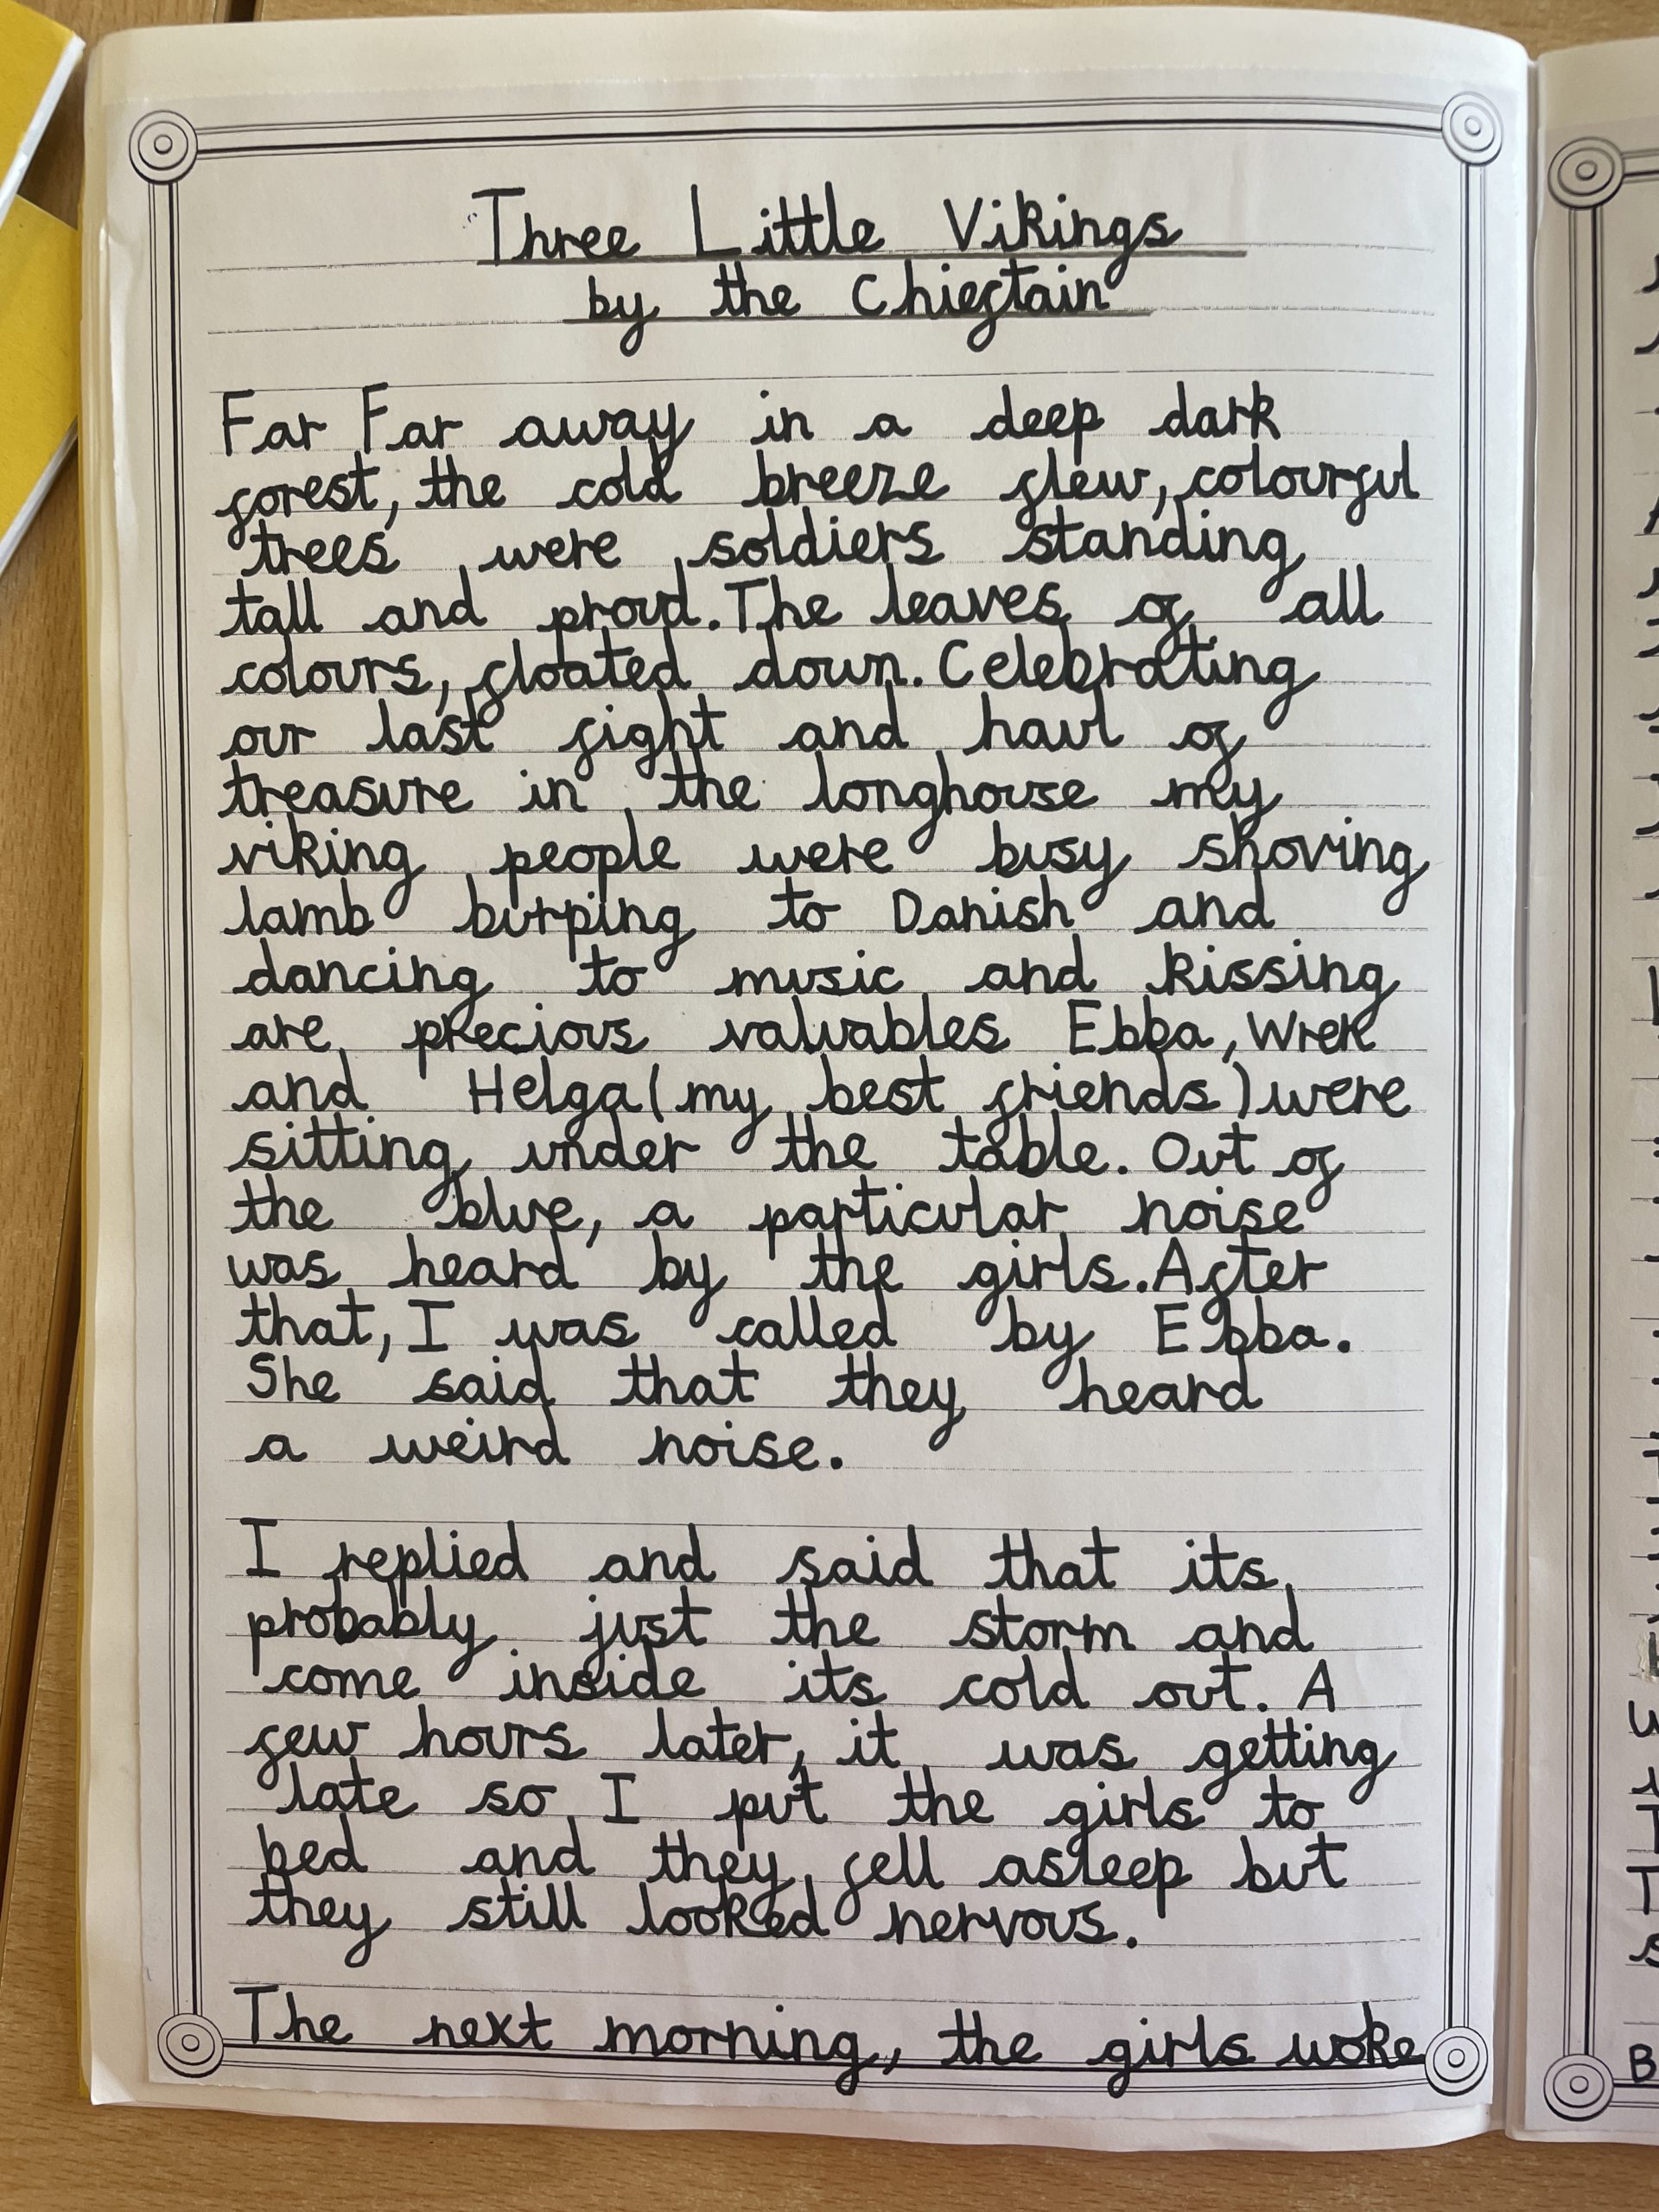 Three Little Vikings
by the Chieftain
Far Far away in a deep dark
forest, the cold breeze flew, colourful
trees were soldiers standing
tall and proud. The leaves of all
colours, floated down. Celebrating
our last fight and haul of
treasure in the longhouse my
viking people were busy shoving
lamb burping to Danish and
dancing to music and kissing
are precious valuables Ebba, Wrek
and Helga (my best friends) were
sitting under the table. Out of
the blue, a particular noise
was heard by the girls. After
that, I was called by Ebba.
She said that they heard
a weird noise.
I replied and said that its
probably just the storm and
come inside its cold out. A
few hours later, it was getting
late so I put the girls to
bed and they fell asleep but
they still looked nervous.
The next morning, the girls woke